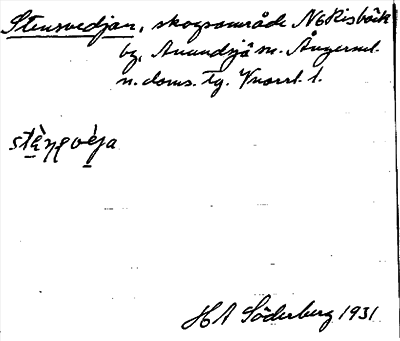 Stensvedjan, skogsområde N Kisbäck
by, Anundsjö sn. Ångerml.
n. doms. tg. Vnorrl. l.
H A Söderberg 1931